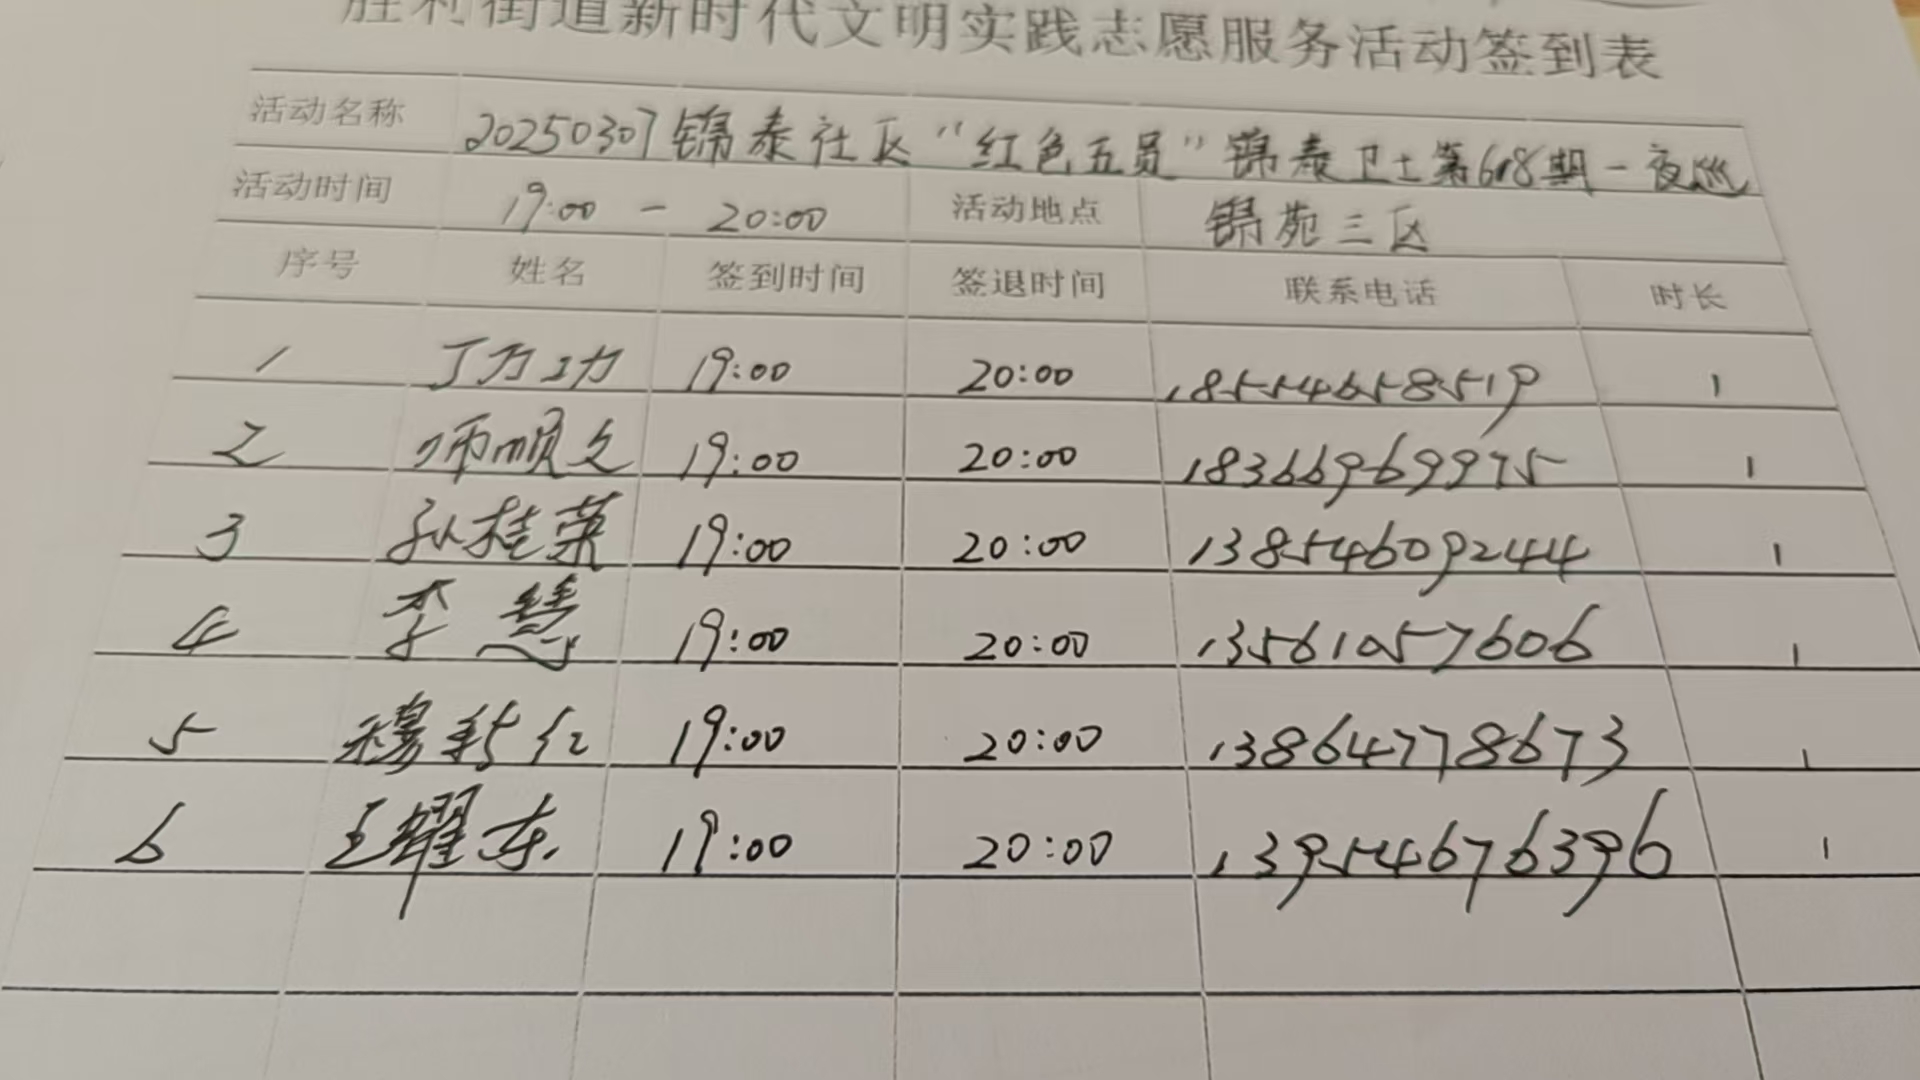 胜利街道新时代文明实践志愿服务活动签到表
活动名称 20250307锦泰社区“红色五员”锦泰卫士第618期-夜巡
活动时间 19:00-20:00 活动地点 锦苑三区
序号 姓名 签到时间 签退时间 联系电话 时长
1 丁万功 19:00 20:00 18554658519 1
2 师顺文 19:00 20:00 18366969975 1
3 孙桂荣 19:00 20:00 13854609244 1
4 李慧 19:00 20:00 13561057606 1
5 穆新仁 19:00 20:00 13864778673 1
6 王耀东 19:00 20:00 13954676396 1